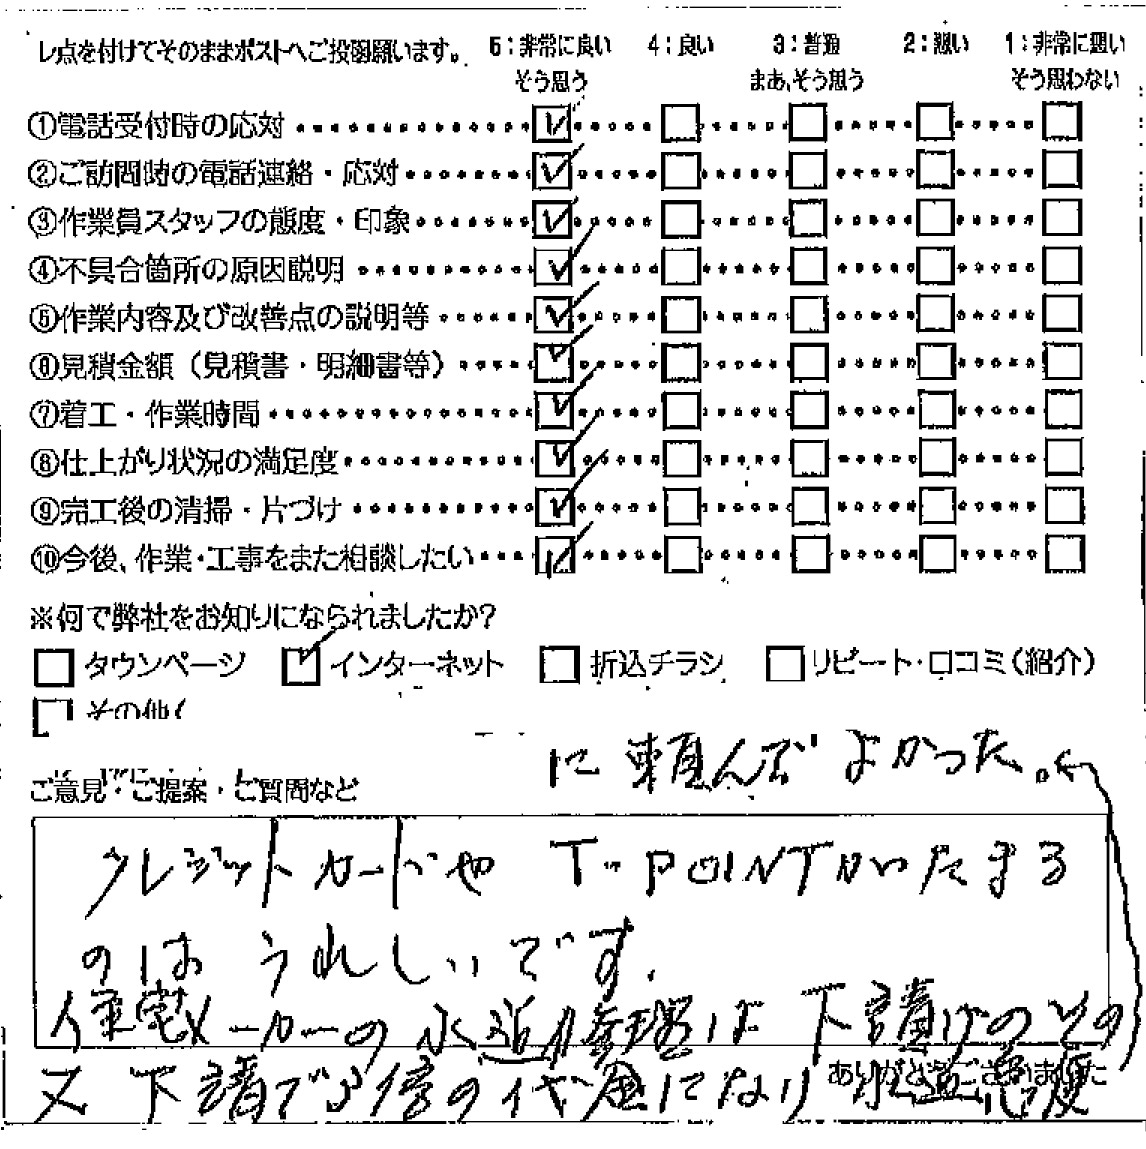 レ点を付けてそのままポストへご投函願います。 5:非常に良い 4:良い 3:普通 2:悪い 1:非常に悪い
そう思う まあ、そう思う そう思わない
①電話受付時の応対
②ご訪問時の電話連絡・応対
③作業員スタッフの態度・印象
④不具合箇所の原因説明
⑤作業内容及び改善点の説明等
⑥見積金額(見積書・明細書等)
⑦着工・作業時間
⑧仕上がり状況の満足度
⑨完工後の清掃・片づけ
⑩今後、作業・工事をまた相談したい
※何で弊社をお知りになられましたか?
タウンページ インターネット 折込チラシ リピート・口コミ(紹介)
その他(
に頼んで よかった。
ご意見・ご提案・ご質問など
クレジットカードや T-POINTがたまる
のは うれしいです。
メーカーの 水道 修理は 下請けのその
又 下請で 3倍の代金になり
ありがとうございました